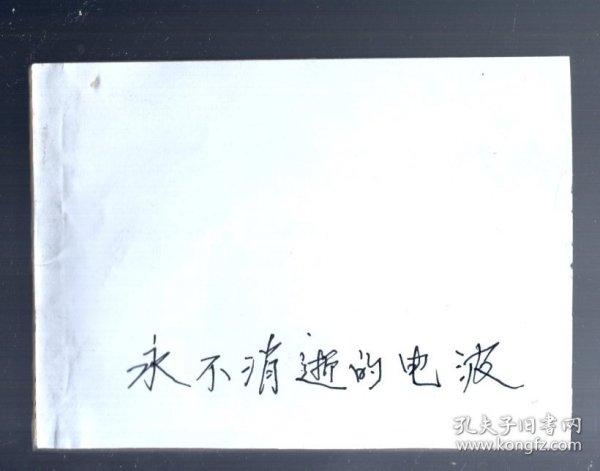 永不消逝的电波
孔夫子旧书网
www.kongfz.com